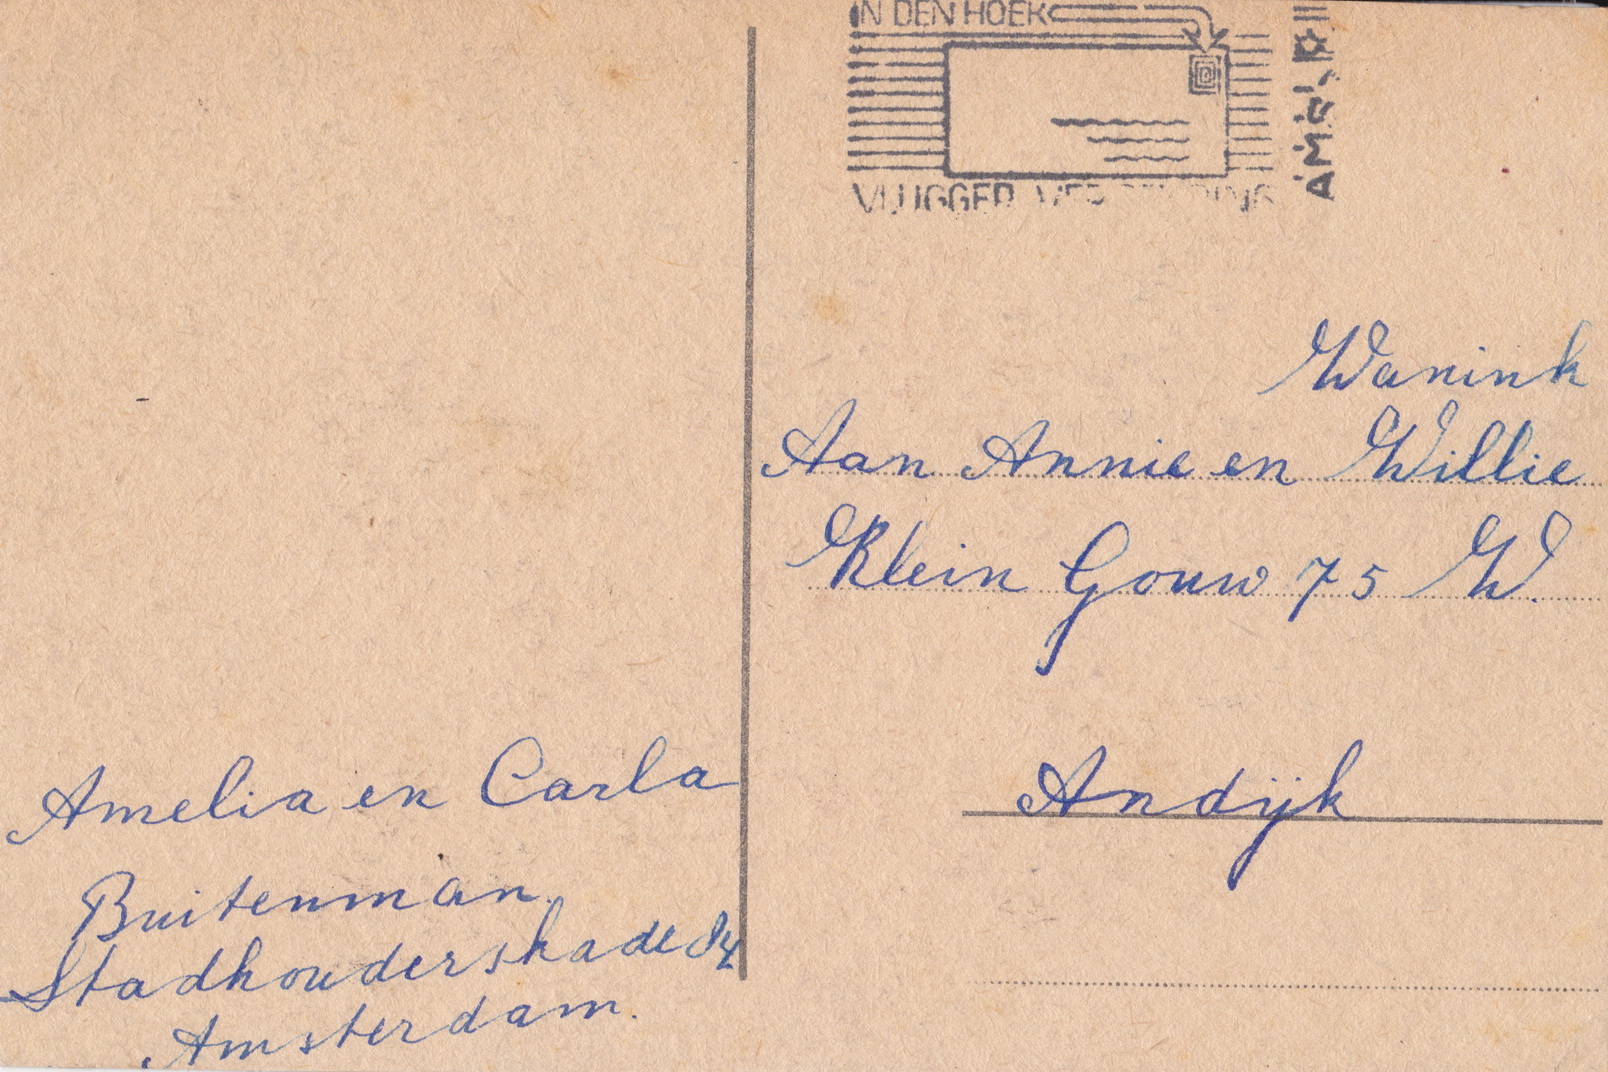 IN DEN HOEK
VLUGGER
AMS
Wanink
Aan Annie en Willie
Klein Gouw 75 W.
Andijk
Amelia en Carla
Buitenman
Stadhouderskade 84
Amsterdam.